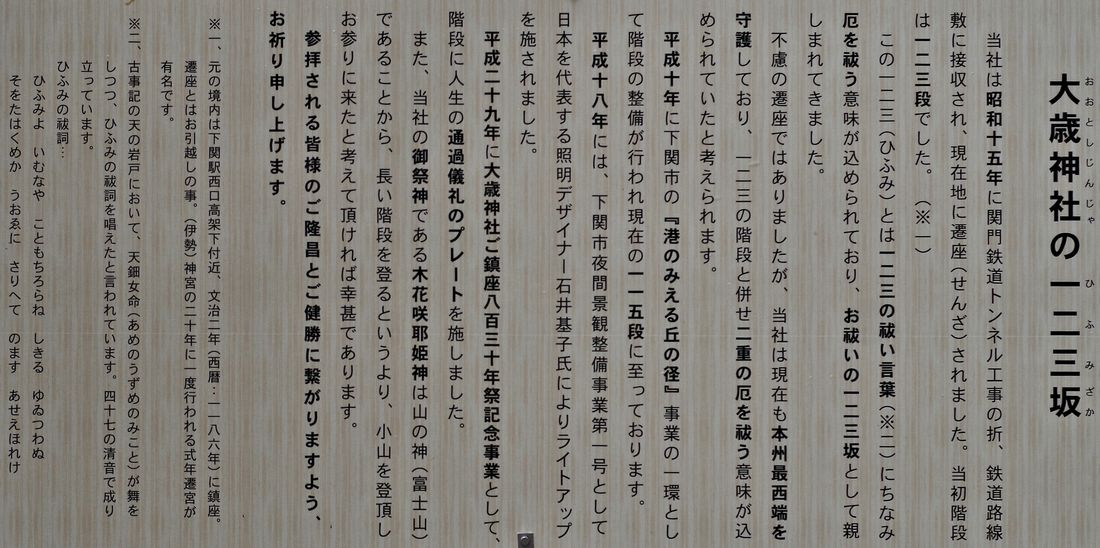 大歳神社の一二三坂
おおとしじんじゃ　ひふみざか
当社は昭和十五年に関門鉄道トンネル工事の折、鉄道路線
敷に接収され、現在地に遷座(せんざ)されました。当初階段
は一二三段でした。(※一)
この一二三(ひふみ)とは一二三の祓い言葉(※二)にちなみ
厄を祓う意味が込められており、お祓いの一二三坂として親
しまれてきました。
不慮の遷座ではありましたが、当社は現在も本州最西端を
守護しており、一二三の階段と併せ二重の厄を祓う意味が込
められていたと考えられます。
平成十年に下関市の『港のみえる丘の径』事業の一環とし
て階段の整備が行われ現在の一一五段に至っております。
平成十八年には、下関市夜間景観整備事業第一号として
日本を代表する照明デザイナー石井基子氏によりライトアップ
を施されました。
平成二十九年に大歳神社ご鎮座八百三十年祭記念事業として、
階段に人生の通過儀礼のプレートを施しました。
また、当社の御祭神である木花咲耶姫神は山の神(富士山)
であることから、長い階段を登るというより、小山を登頂し
お参りに来たと考えて頂ければ幸甚であります。
参拝される皆様のご隆昌とご健勝に繋がりますよう、
お祈り申し上げます。
※一、元の境内は下関駅西口高架下付近、文治二年(西暦:一一八六年)に鎮座。
遷座とはお引越しの事。(伊勢)神宮の二十年に一度行われる式年遷宮が
有名です。
※二、古事記の天の岩戸において、天鈿女命(あめのうずめのみこと)が舞を
しつつ、ひふみの祓詞を唱えたと言われています。四十七の清音で成り
立っています。
ひふみの祓詞…
ひふみよ　いむなや　こともちろらね　しきる　ゆゐつわぬ
そをたはくめか　うおゑに　さりへて　のます　あせえほれけ